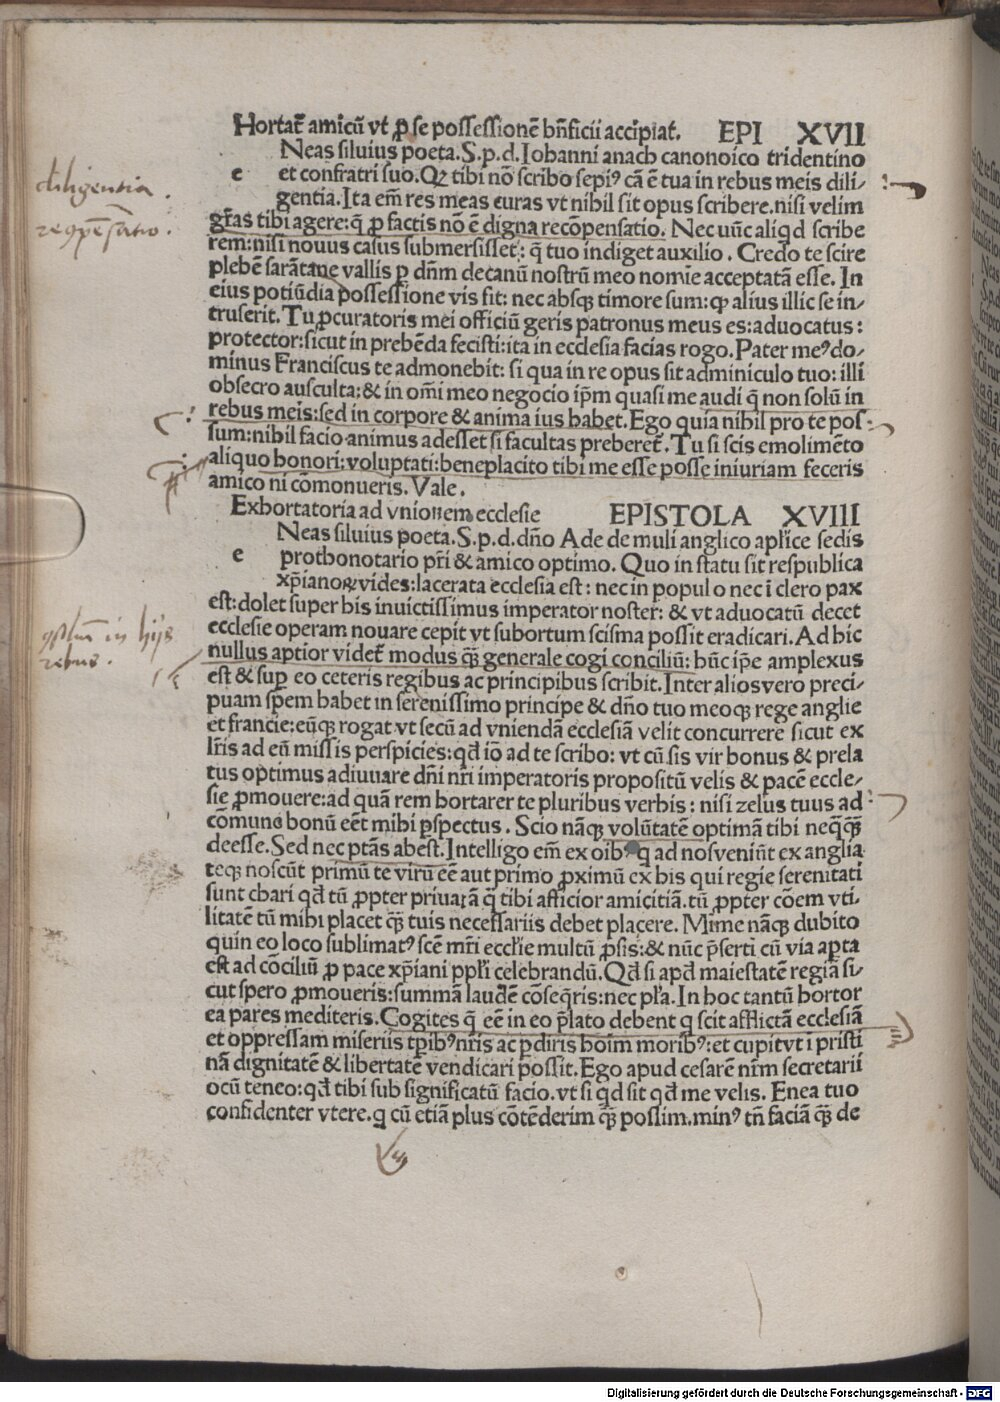 Hortat̄ amicū vt ꝓ se possessionē bn̄ficii accipiat. EPI XVII
Neas siluius poeta. S. p. d. Iohanni anach canonoico tridentino
e et confratri suo. Qꝫ tibi nō scribo sepiꝰ cā ē tua in rebus meis dili⸗
gentia. Ita em̄ res meas curas vt nihil sit opus scribere. nisi velim
gr̄as tibi agere: q̄ ꝓ factis nō ē digna recōpensatio. Nec uūc aliqd̄ scribe
rem: nisi nouus casus submersisset: q̄ tuo indiget auxilio. Credo te scire
plebē sarātane vallis ꝑ dn̄m decanū nostrū meo nomīe acceptatā esse. In
eius potiūdia possessione vis fit: nec absqꝫ timore sum: ꝙ alius illic se in⸗
truserit. Tu ꝓcuratoris mei officiū geris patronus meus es: aduocatus:
protector: sicut in prebēda fecisti: ita in ecclesia facias rogo. Pater meꝰ do⸗
minus Franciscus te admonebit: si qua in re opus sit adminiculo tuo: illi
obsecro ausculta: & in om̄i meo negocio ip̄m quasi me audi q̄ non solū in
rebus meis: sed in corpore & anima ius habet. Ego quia nihil pro te pos⸗
sum: nihil facio animus adesset si facultas preberet̄. Tu si scis emolimēto
aliquo honori: voluptati: beneplacito tibi me esse posse iniuriam feceris
amico ni cōmonueris. Vale.
Exhortatoria ad vnionem ecclesie EPISTOLA XVIII
Neas siluius poeta. S. p. d. dn̄o Ade de muli anglico apl̄ice sedis
e prothonotario pr̄i & amico optimo. Quo in statu sit respublica
xp̄ianoꝝ vides: lacerata ecclesia est: nec in populo nec ī clero pax
est: dolet super his inuictissimus imperator noster: & vt aduocatū decet
ecclesie operam nouare cepit vt subortum scisma possit eradicari. Ad hic
nullus aptior videt̄ modus qꝫ̄ generale cogi conciliū: hūc ip̄e amplexus
est & suꝑ eo ceteris regibus ac principibus scribit. Inter alios vero preci⸗
puam spem habet in serenissimo principe & dn̄o tuo meoqꝫ rege anglie
et francie: eūqꝫ rogat vt secū ad vniendā ecclesiā velit concurrere sicut ex
lr̄is ad eū missis perspicies: qd̄ iō ad te scribo: vt cū sis vir bonus & prela
tus optimus adiuuare dn̄i nr̄i imperatoris propositū velis & pacē eccle⸗
sie ꝓmouere: ad quā rem hortarer te pluribus verbis: nisi zelus tuus ad
cōmune bonū eēt mihi ꝑspectus. Scio nāqꝫ volūtatē optimā tibi neqꝫqꝫ̄
deesse. Sed nec ptās abest. Intelligo em̄ ex oibꝰ q̄ ad nos veniūt ex anglia
teqꝫ noscūt primū te virū eē aut primo ꝓximū ex his qui regie serenitati
sunt chari qd̄ tū ꝓpter priuatā q̄ tibi afficior amicitiā. tū ꝓpter cōem vti⸗
litatē tū mihi placet qꝫ̄ tuis necessariis debet placere. Mīme nāqꝫ dubito
quin eo loco sublimatꝰ scē mr̄i eccl̄ie multū ꝓsis: & nūc p̄serti cū via aꝑta
est ad cōciliū ꝓ pace xp̄iani ppl̄i celebrandū. Qd̄ si apd̄ maiestatē regiā si⸗
cut spero ꝓmoueris: summā laudē cōseq̄ris: nec pl̄a. In hoc tantū hortor
ea pares mediteris. Cogites q̄ eē in eo p̄lato debent q scit afflictā ecclesiā
et oppressam miseriis tꝑibꝰ nr̄is ac ꝑdiris hoīm moribꝰ: et cupit vt ī pristi
nā dignitatē & libertatē vendicari possit. Ego apud cesarē nr̄m secretarii
ocū teneo: qd̄ tibi sub significatū facio. vt si qd̄ sit qd̄ me velis. Enea tuo
confidenter vtere. q cū etiā plus cōtēderim qꝫ̄ possim. minꝰ tn̄ faciā qꝫ̄ de
diligentia.
in hijs
rebus.
Digitalisierung gefördert durch die Deutsche Forschungsgemeinschaft - DFG